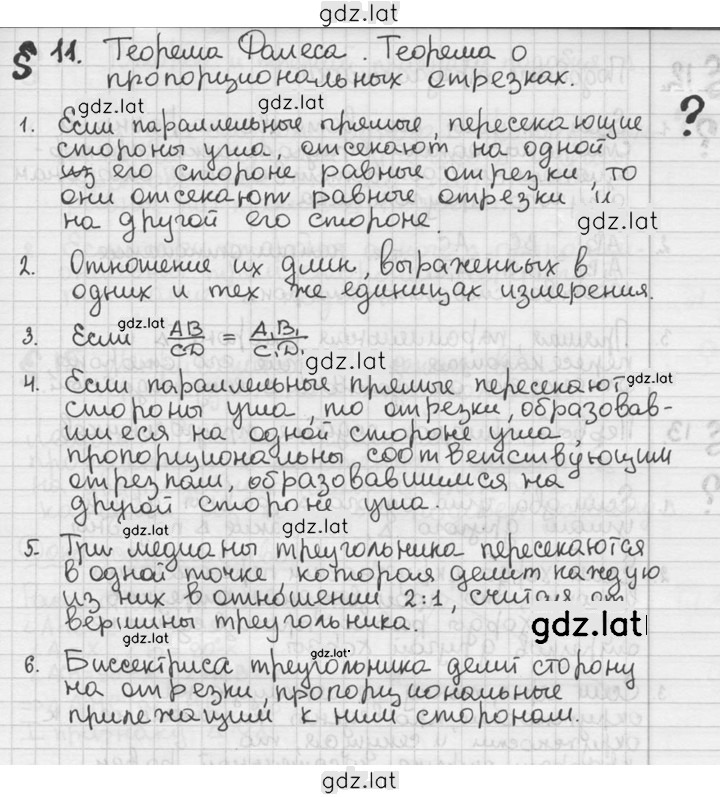 gdz.lat
§ 11. Теорема Фалеса. Теорема о
пропорциональных отрезках.
gdz.lat gdz.lat
?
1. Если параллельные прямые, пересекающие
стороны угла, отсекают на одной
из его стороне равные отрезки, то
они отсекают равные отрезки и
на другой его стороне.
gdz.lat
2. Отношение их длин, выраженных в
одних и тех же единицах измерения.
gdz.lat
3. Если AB/CD = A₁B₁/C₁D₁
gdz.lat
4. Если параллельные прямые пересекают
стороны угла, то отрезки, образовав-
шиеся на одной стороне угла,
пропорциональны соответствующим
отрезкам, образовавшимся на
другой стороне угла.
gdz.lat gdz.lat
5. Три медианы треугольника пересекаются
в одной точке которая делит каждую
из них в отношении 2:1, считая от
вершины треугольника.
gdz.lat
gdz.lat gdz.lat
6. Биссектриса треугольника делит сторону
на отрезки, пропорциональные
прилежащим к ним сторонам.
gdz.lat